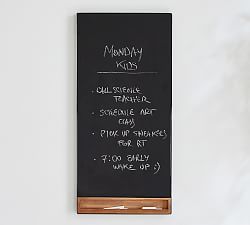 MONDAY
KIDS
• CALL SCIENCE
TEACHER
• SCHEDULE ART
CLASS
• PICK UP SNEAKERS
FOR BT
• 7:00 EARLY
WAKE UP :)